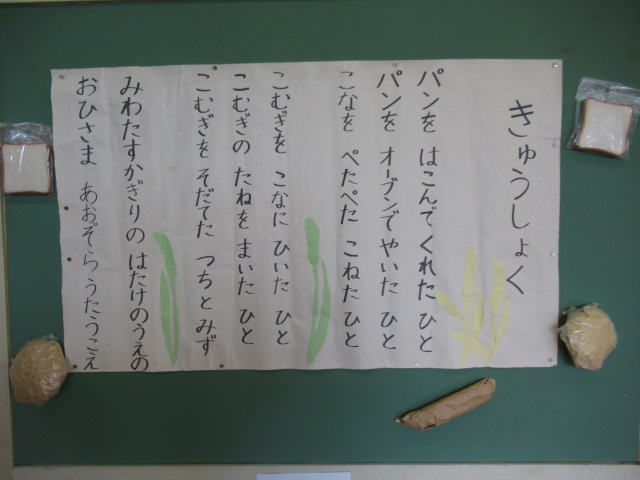 きゅうしょく
パンを はこんで くれた ひと
パンを オーブンで やいた ひと
こなを ぺたぺた こねた ひと
こむぎを こなに ひいた ひと
こむぎの たねを まいた ひと
こむぎを そだてた つちと みず
みわたすかぎりの はたけのうえの
おひさま あおぞら うたうこえ